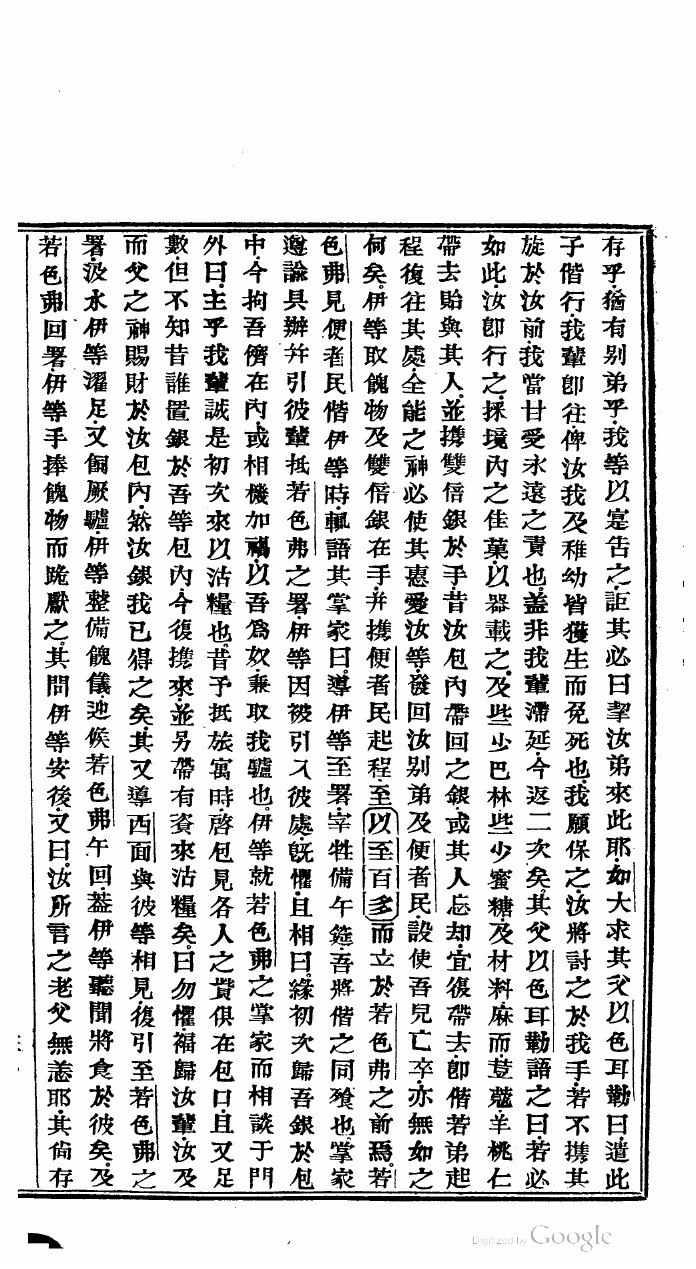 存乎.猶有别弟乎.我等以寔告之.詎其必曰挈汝弟來此耶.如大求其父以色耳勒曰.遣此
子偕行.我輩卽往.俾汝我及稚幼皆獲生而免死也.我願保之.汝將討之於我手.若不攜其
旋於汝前.我當甘受永遠之責也.葢非我輩滯延.今返二次矣.其父以色耳勒語之曰.若必
如此.汝卽行之.採境內之佳菓.以器載之.及些少巴林些少蜜糖.及材料麻而荳蔲羊桃仁
帶去貽與其人.並攜雙倍銀於手.昔汝包內帶回之銀.或其人忘却.宜復帶去.卽偕若弟起
程復往其處.全能之神必使其惠愛汝等.發回汝别弟及便者民.設使吾兒亡卒.亦無如之
何矣.伊等取餽物及雙倍銀在手.并攜便者民起程.至以至百多而立於若色弗之前焉.若
色弗見便者民偕伊等時.輒語其掌家曰.導伊等至署.宰牲備午筵.吾將偕之同飱也.掌家
遵諭具辦.并引彼輩抵若色弗之署.伊等因被引入彼處.旣懼.且相曰.緣初次歸吾銀於包
中.今拘吾儕在內.或相機加禍.以吾爲奴.兼取我驢也.伊等就若色弗之掌家而相談于門
外曰.主乎.我輩誠是初次來以沽糧也.昔予抵旅寓時.啓包見各人之貲俱在包口.且又足
數.但不知昔誰置銀於吾等包內.今復攜來.並另帶有資來沽糧矣.曰勿懼.福歸汝輩.汝及
而父之神賜財於汝包內.然汝銀我已得之矣.其又導西面與彼等相見.復引至若色弗之
署.汲水伊等濯足.又餇厥驢.伊等整備餽儀.迆候若色弗午回.葢伊等聽聞將食於彼矣.及
若色弗回署.伊等手捧餽物而跪獻之.其問伊等安後.又曰.汝所言之老父無恙耶.其尙存
Digitized by Google